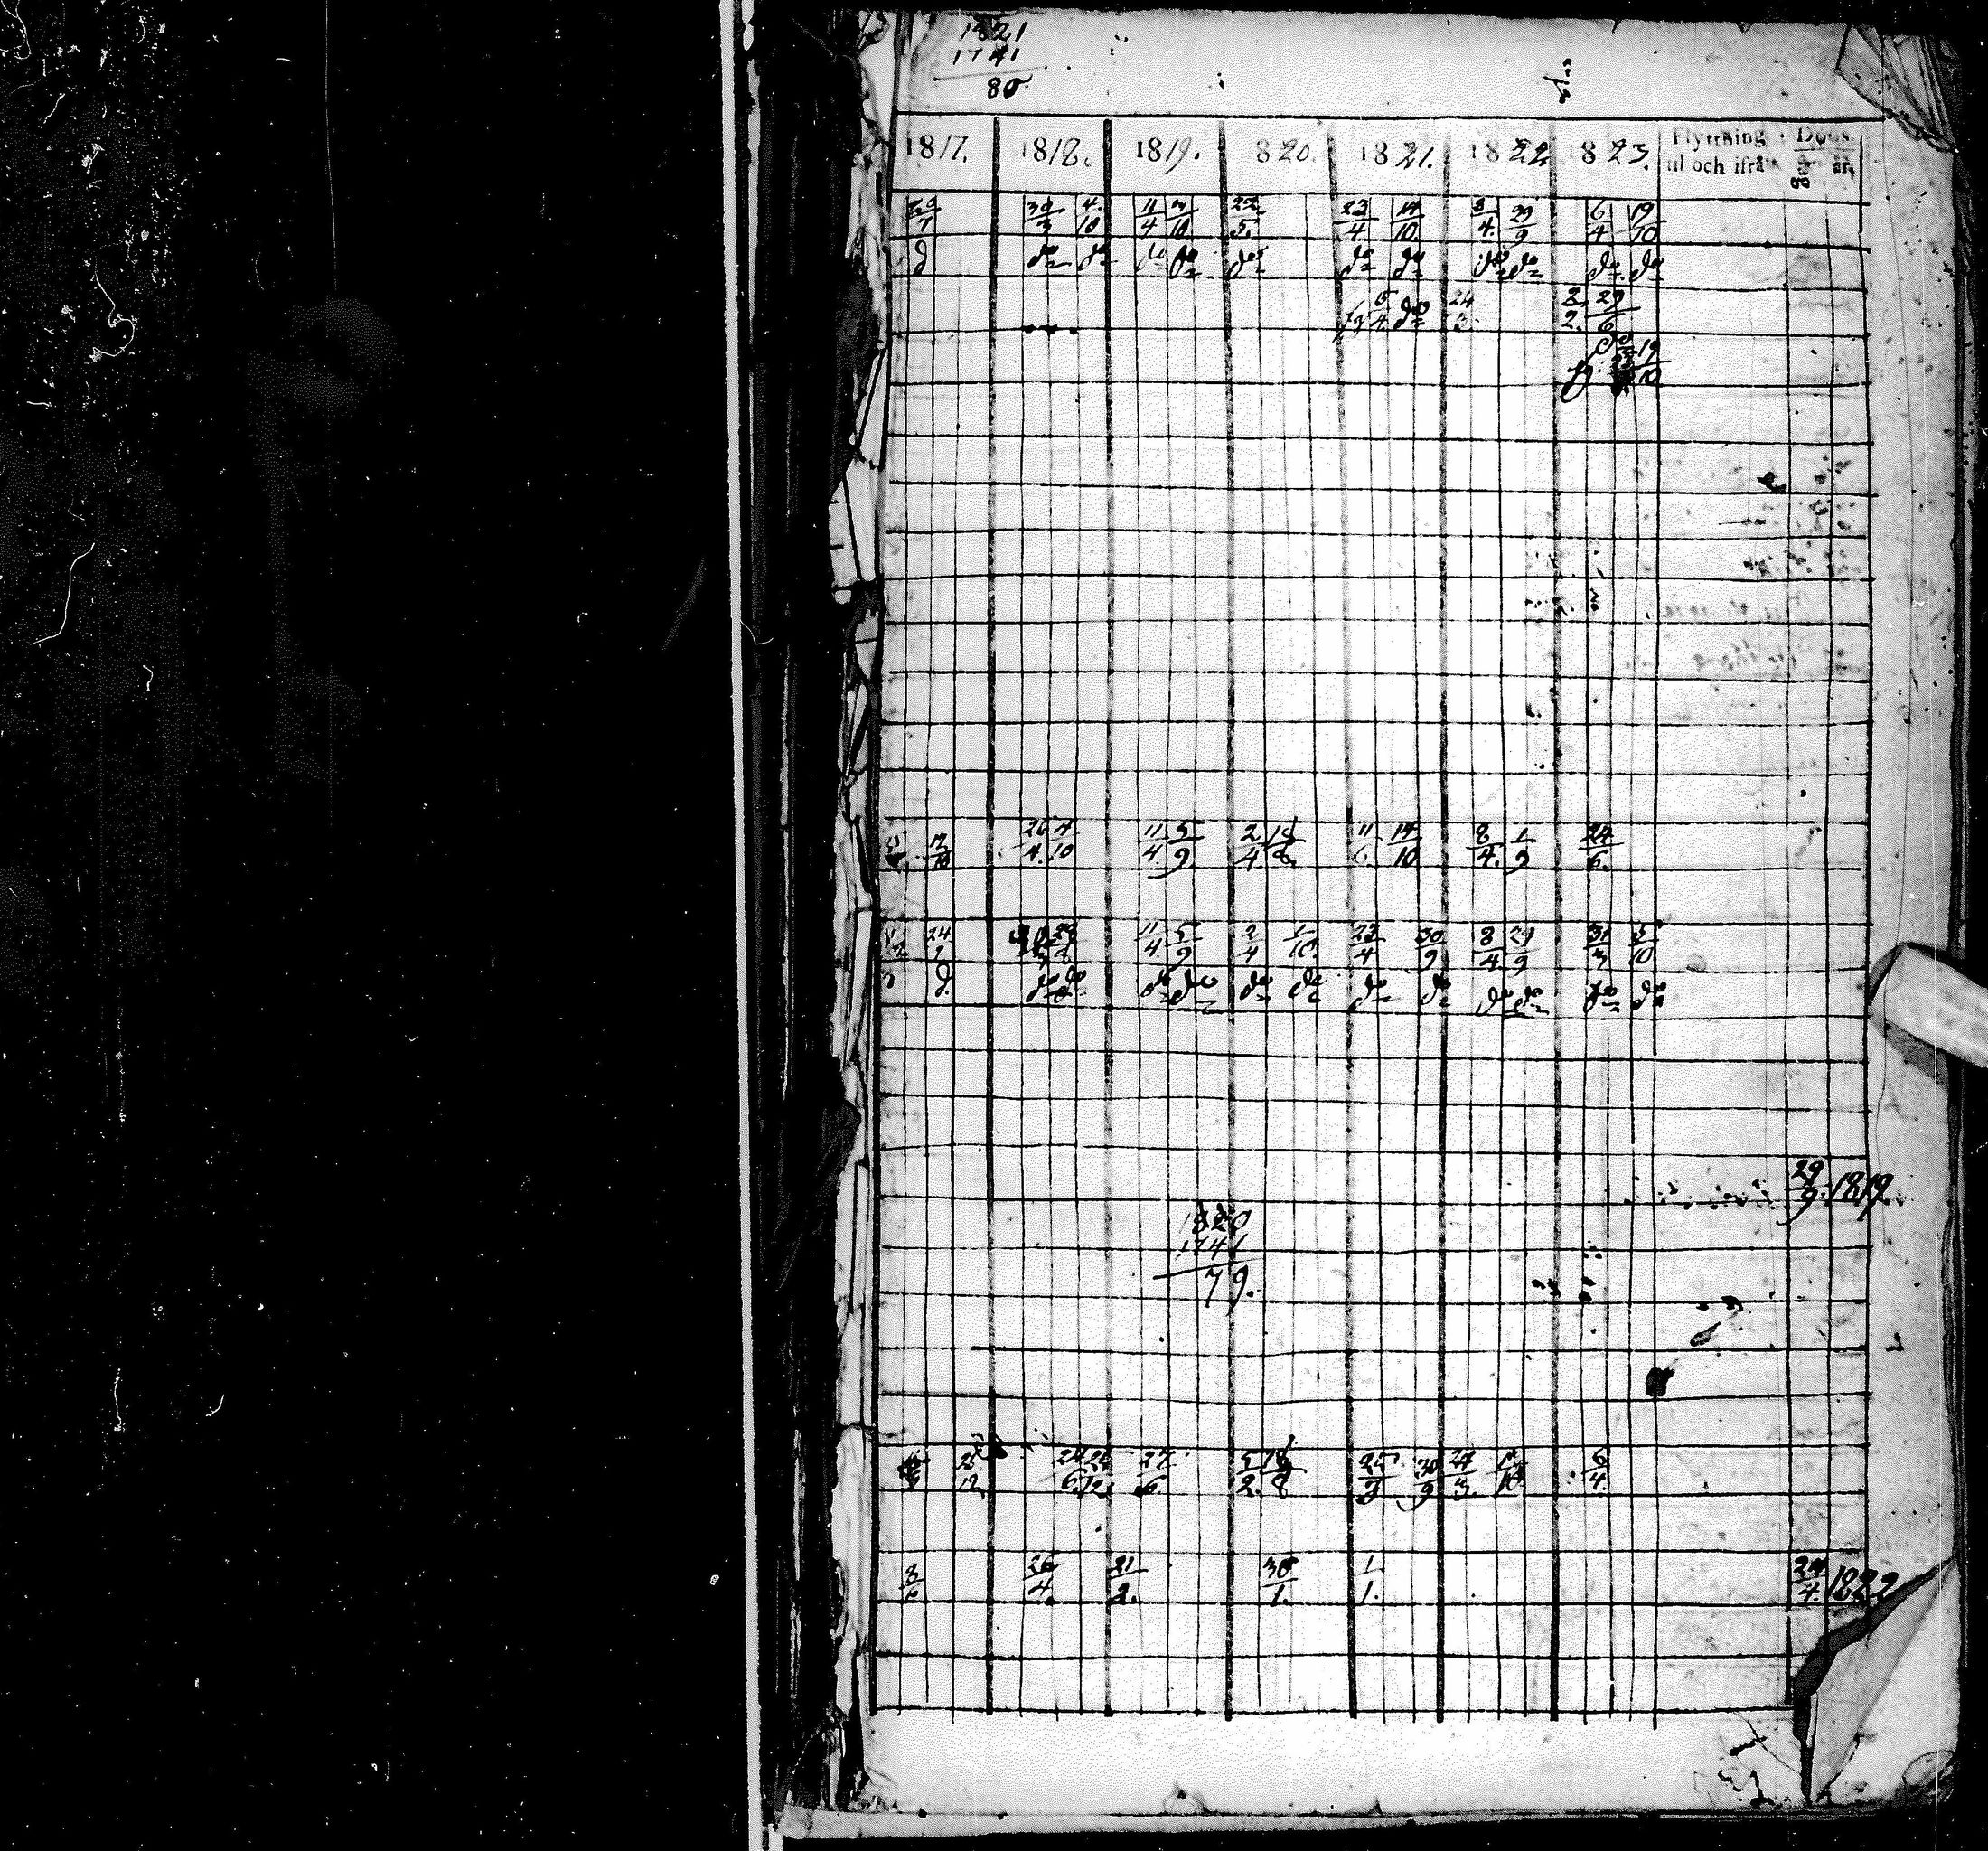 1821
1741
80
1817. 1818. 1819. 1820. 1821. 1822 1823. Flyttning Döds
til och ifrå dag år,
30/3 4/10 11/4 3/10 22/5. 23/4 14/10 8/4 29/9 6/4 19/10
d do do do do do do do do do do do
5/4 do 24/3. 2/2. 29/6
do 19/10
12/10 26/4 4/10 11/4 5/9 2/4 18/8. 11/6 14/10 8/4 1/9 24/6.
24/2 11/4 5/9 2/4 1/10 23/4 30/9 8/4 29/9 31/3 5/10
d. do do do do do do do do do do do do
29/9 1819.
1820
1741
79.
24/6 26/12 27/6 5/2. 18/8 25/3 30/9 24/3. 6/4.
3/6 26/4. 21/2. 30/1. 1/1. 24/4. 1822